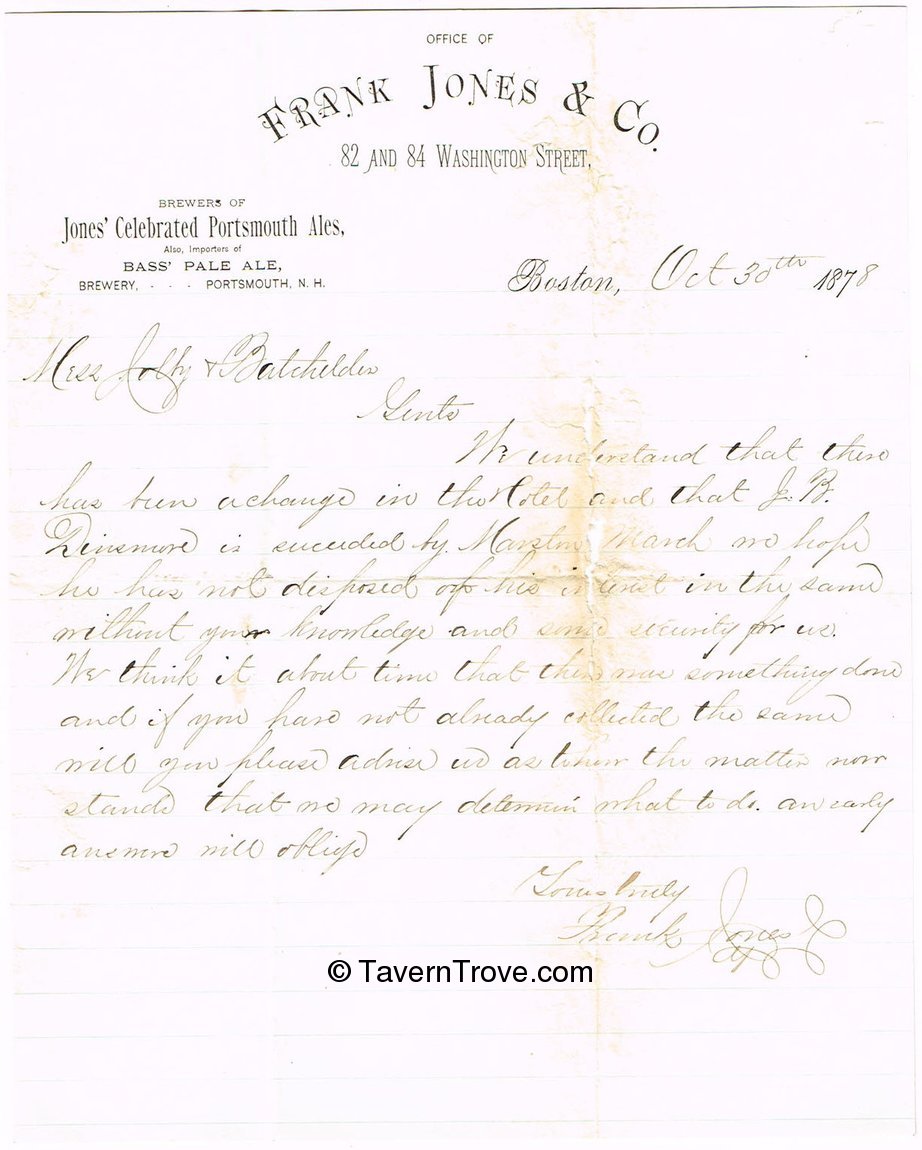 OFFICE OF
FRANK JONES & CO.
82 AND 84 WASHINGTON STREET,
BREWERS OF
Jones' Celebrated Portsmouth Ales,
Also, Importers of
BASS' PALE ALE,
BREWERY, - - - PORTSMOUTH, N. H.
Boston, Oct 30th 1878
Mess & Batchelder
Gents
We understand that there
has been a change in the Hotel and that J. B.
Dinsmore is succeeded by Marston March we hope
he has not disposed of his interest in the same
without your knowledge and some security for us.
We think it about time that there was something done
and if you have not already collected the same
will you please advise us as to how the matter now
stands that we may determin what to do. an early
answere will oblige
Yours truly
Frank Jones & Co
© TavernTrove.com